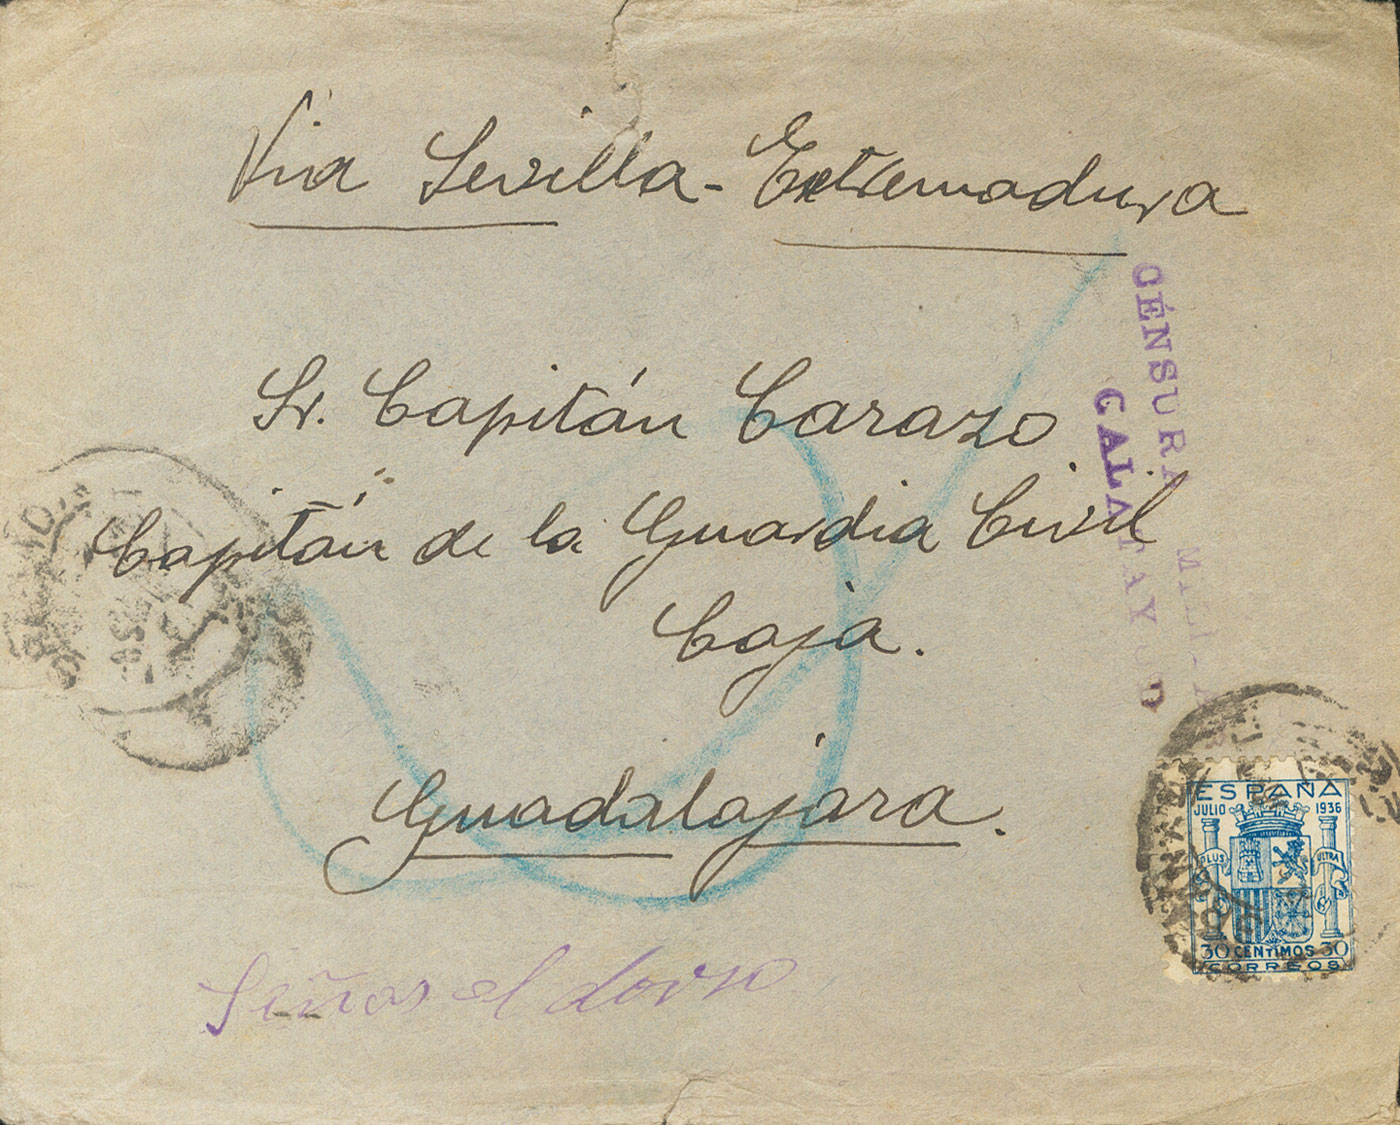 Via Sevilla - Extremadura
Sr. Capitán Carazo
Capitán de la Guardia Civil
Caja.
Guadalajara.
Señas al dorso
CENSURA MILITAR
CALATAYUD
ESPAÑA
JULIO 1936
PLUS ULTRA
30 CENTIMOS 30
CORREOS